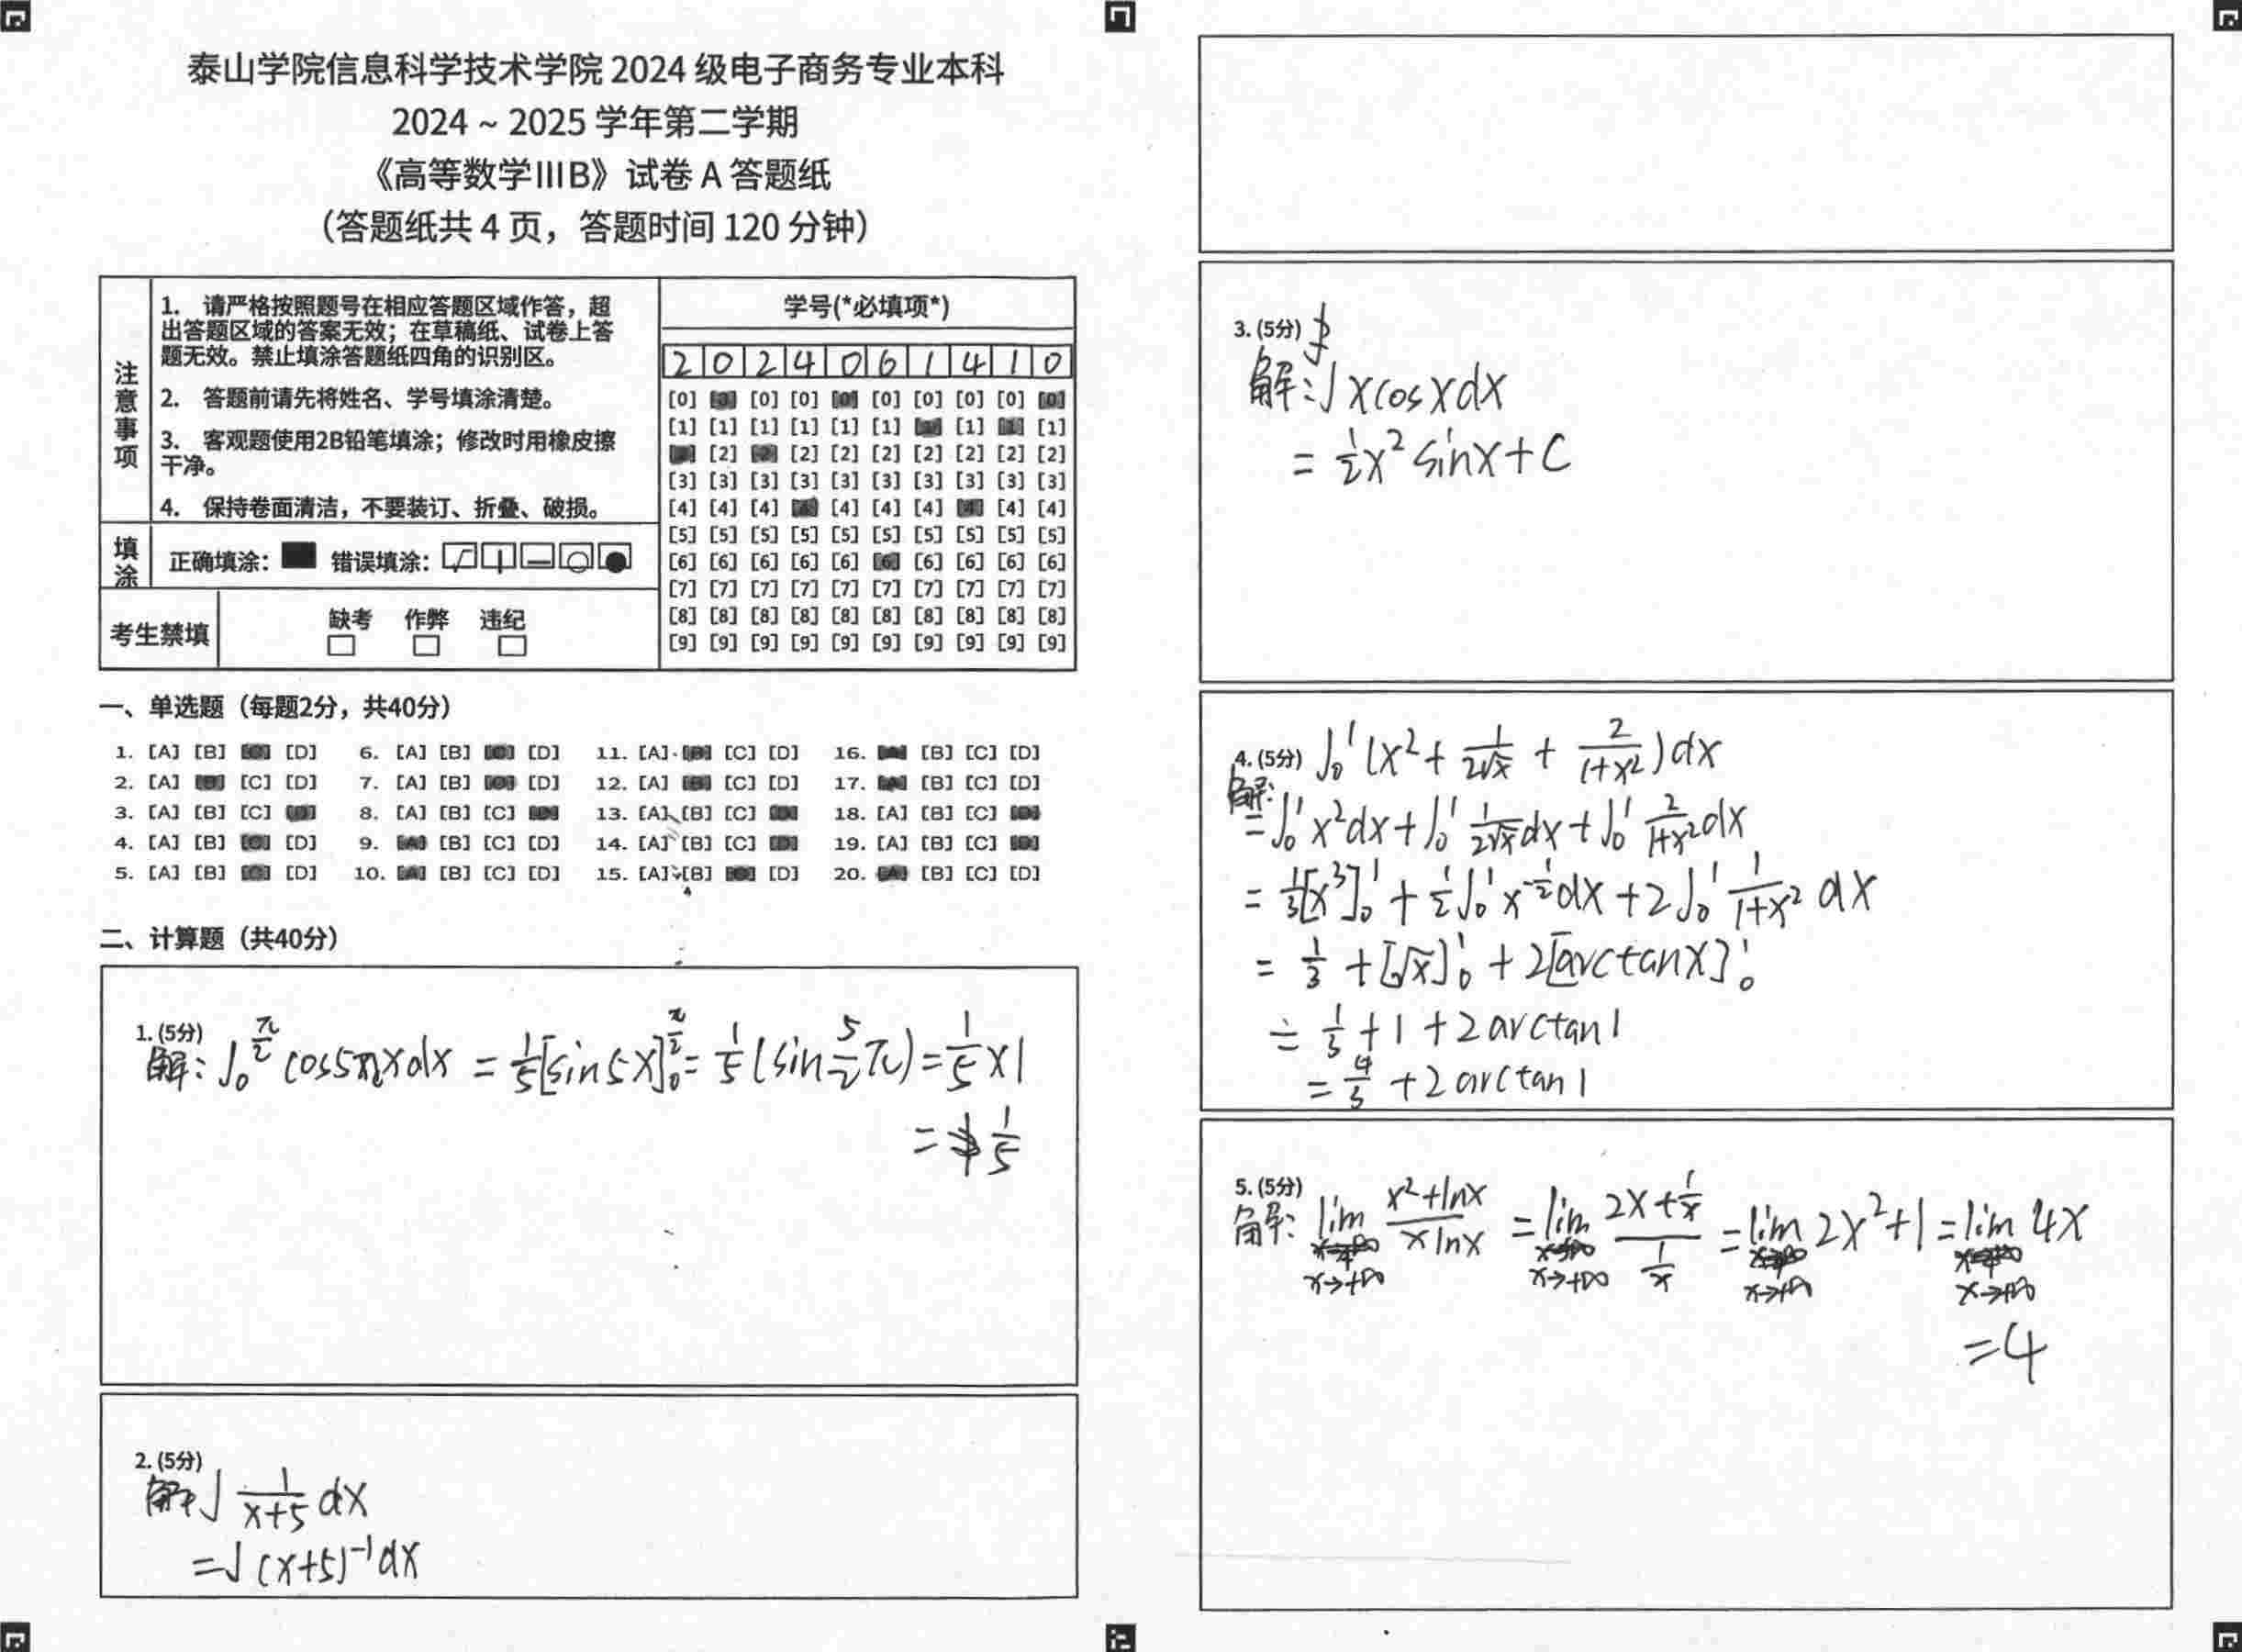 泰山学院信息科学技术学院 2024 级电子商务专业本科
2024 ~ 2025 学年第二学期
《高等数学ⅢB》试卷 A 答题纸
（答题纸共 4 页，答题时间 120 分钟）
注意事项
1. 请严格按照题号在相应答题区域作答，超
出答题区域的答案无效；在草稿纸、试卷上答
题无效。禁止填涂答题纸四角的识别区。
2. 答题前请先将姓名、学号填涂清楚。
3. 客观题使用2B铅笔填涂；修改时用橡皮擦
干净。
4. 保持卷面清洁，不要装订、折叠、破损。
填涂
正确填涂： 错误填涂：
考生禁填
缺考 作弊 违纪
学号(*必填项*)
2 0 2 4 0 6 1 4 1 0
[0] [0] [0] [0] [0] [0] [0] [0] [0] [0]
[1] [1] [1] [1] [1] [1] [1] [1] [1] [1]
[2] [2] [2] [2] [2] [2] [2] [2] [2] [2]
[3] [3] [3] [3] [3] [3] [3] [3] [3] [3]
[4] [4] [4] [4] [4] [4] [4] [4] [4] [4]
[5] [5] [5] [5] [5] [5] [5] [5] [5] [5]
[6] [6] [6] [6] [6] [6] [6] [6] [6] [6]
[7] [7] [7] [7] [7] [7] [7] [7] [7] [7]
[8] [8] [8] [8] [8] [8] [8] [8] [8] [8]
[9] [9] [9] [9] [9] [9] [9] [9] [9] [9]
一、单选题（每题2分，共40分）
1. [A] [B] [C] [D] 6. [A] [B] [C] [D] 11. [A] [B] [C] [D] 16. [A] [B] [C] [D]
2. [A] [B] [C] [D] 7. [A] [B] [C] [D] 12. [A] [B] [C] [D] 17. [A] [B] [C] [D]
3. [A] [B] [C] [D] 8. [A] [B] [C] [D] 13. [A] [B] [C] [D] 18. [A] [B] [C] [D]
4. [A] [B] [C] [D] 9. [A] [B] [C] [D] 14. [A] [B] [C] [D] 19. [A] [B] [C] [D]
5. [A] [B] [C] [D] 10. [A] [B] [C] [D] 15. [A] [B] [C] [D] 20. [A] [B] [C] [D]
二、计算题（共40分）
1. (5分)
解: ∫₀^(π/2) cos5x dx = 1/5[sin5x]₀^(π/2) = 1/5(sin 5/2 π) = 1/5 × 1
= 1/5
2. (5分)
解 ∫ 1/(x+5) dx
= ∫ (x+5)⁻¹ dx
3. (5分)
解: ∫ x cosx dx
= 1/2 x² sinx + C
4. (5分) ∫₀¹ (x² + 1/(2√x) + 2/(1+x²)) dx
解:
= ∫₀¹ x² dx + ∫₀¹ 1/(2√x) dx + ∫₀¹ 2/(1+x²) dx
= 1/3[x³]₀¹ + 1/2 ∫₀¹ x^(-1/2) dx + 2∫₀¹ 1/(1+x²) dx
= 1/3 + [√x]₀¹ + 2[arctanx]₀¹
= 1/3 + 1 + 2arctan1
= 4/3 + 2arctan1
5. (5分)
解: lim x→+∞ (x²+lnx)/(xlnx) = lim x→+∞ (2x+1/x)/(1/x) = lim x→+∞ 2x²+1 = lim x→+∞ 4x
= 4